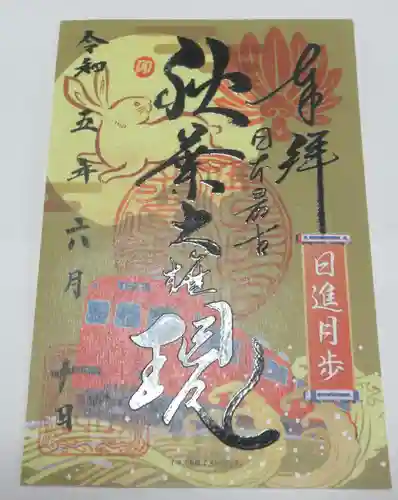 奉拝
日本最古
秋葉大権現
令和五年六月十日
日進月歩
卯